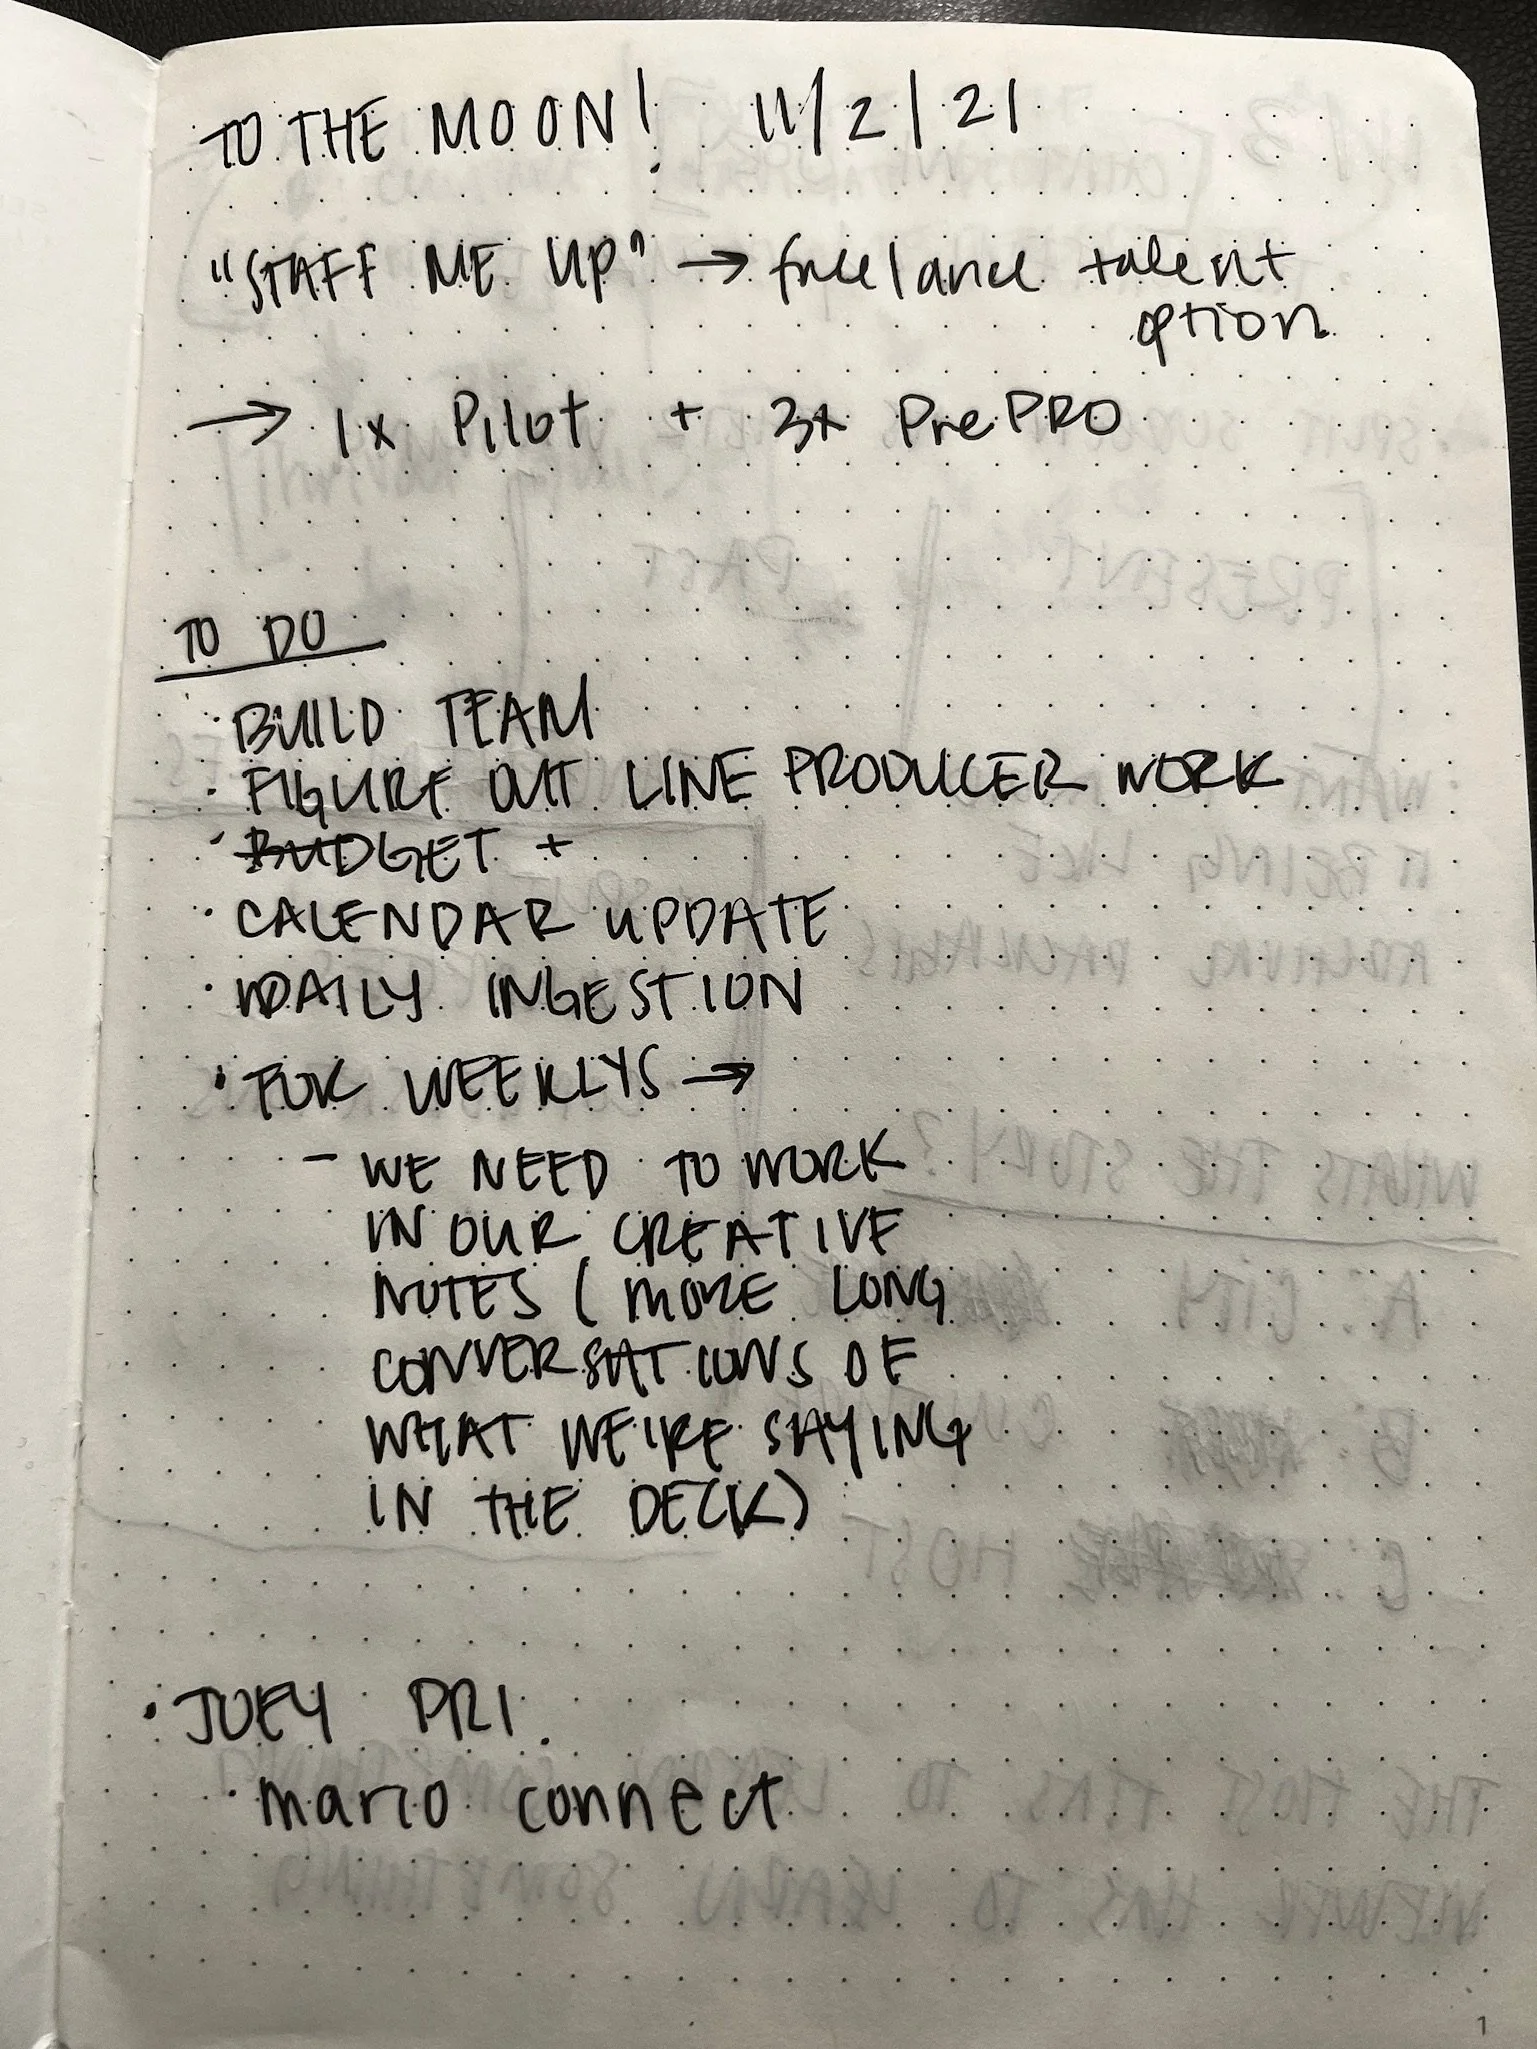 TO THE MOON! 11/2/21
"STAFF ME UP" → freelance talent
option
→ 1x Pilot + 3x PrePRO
TO DO
· BUILD TEAM
· FIGURE OUT LINE PRODUCER WORK
· BUDGET +
· CALENDAR UPDATE
· DAILY INGESTION
· FOR WEEKLYS →
- WE NEED TO WORK
IN OUR CREATIVE
NOTES (MORE LONG
CONVERSATIONS OF
WHAT WE'RE SAYING
IN THE DECK)
· JOEY PRI.
· mario connect
1